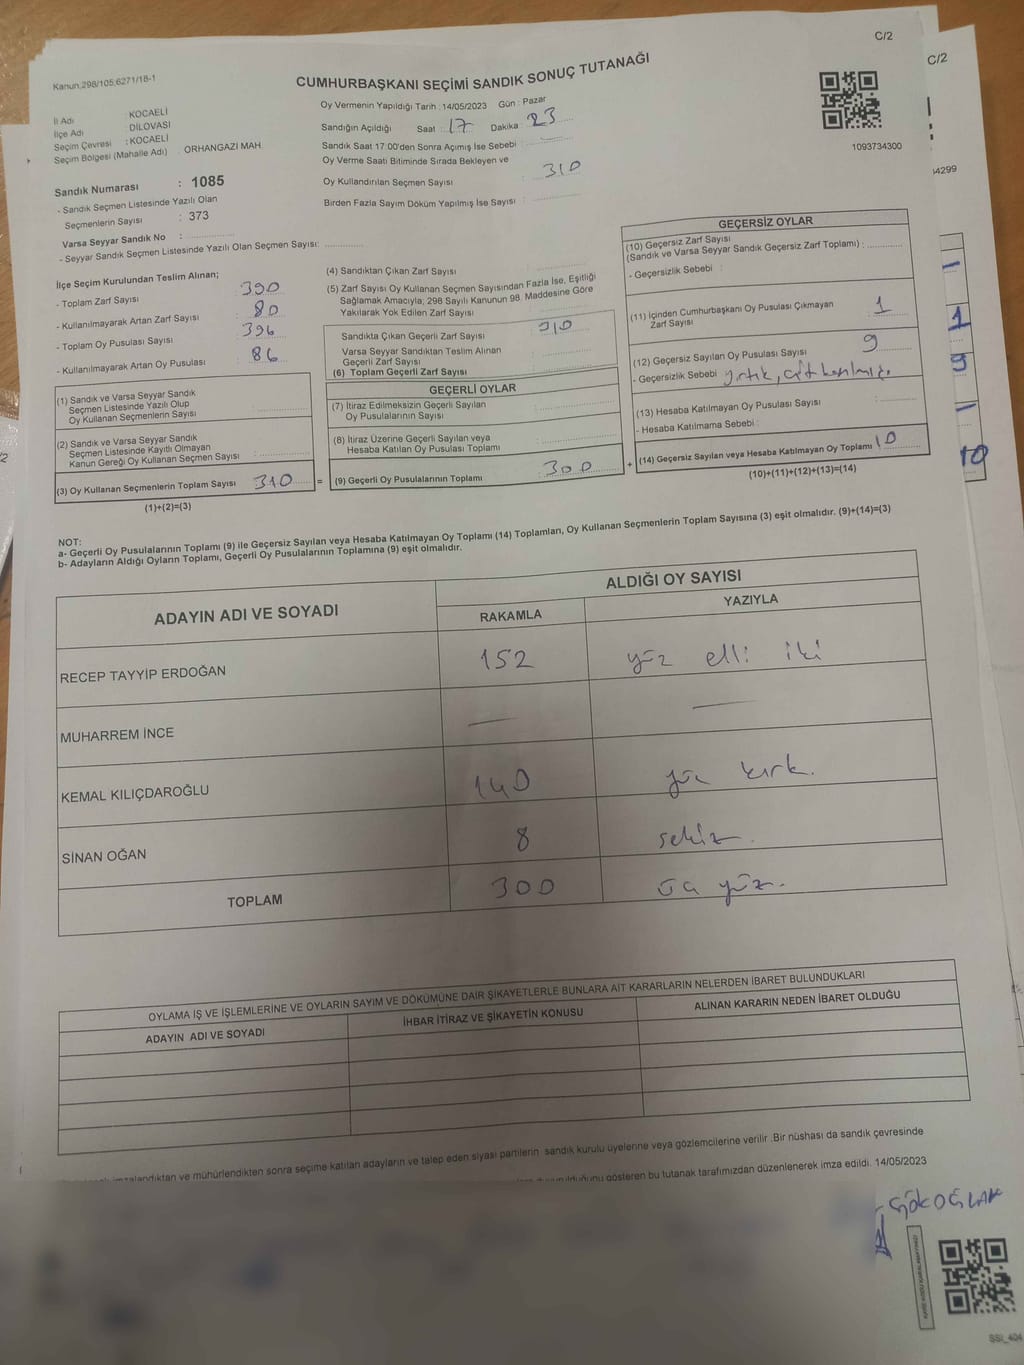 C/2
C/2
Kanun:298/105;6271/18-1
CUMHURBAŞKANI SEÇİMİ SANDIK SONUÇ TUTANAĞI
İl Adı : KOCAELİ
İlçe Adı : DİLOVASI
Seçim Çevresi : KOCAELİ
Seçim Bölgesi (Mahalle Adı) : ORHANGAZİ MAH.
Sandık Numarası : 1085
- Sandık Seçmen Listesinde Yazılı Olan
Seçmenlerin Sayısı : 373
Varsa Seyyar Sandık No :
- Seyyar Sandık Seçmen Listesinde Yazılı Olan Seçmen Sayısı:
Oy Vermenin Yapıldığı Tarih : 14/05/2023 Gün : Pazar
Sandığın Açıldığı Saat : 17 Dakika : 23
Sandık Saat 17:00'den Sonra Açımış İse Sebebi :
Oy Verme Saati Bitiminde Sırada Bekleyen ve
Oy Kullandırılan Seçmen Sayısı : 310
Birden Fazla Sayım Döküm Yapılmış İse Sayısı :
1093734300
34299
İlçe Seçim Kurulundan Teslim Alınan;
- Toplam Zarf Sayısı : 390
- Kullanılmayarak Artan Zarf Sayısı : 80
- Toplam Oy Pusulası Sayısı : 396
- Kullanılmayarak Artan Oy Pusulası : 86
(1) Sandık ve Varsa Seyyar Sandık
Seçmen Listesinde Yazılı Olup
Oy Kullanan Seçmenlerin Sayısı :
(2) Sandık ve Varsa Seyyar Sandık
Seçmen Listesinde Kayıtlı Olmayan
Kanun Gereği Oy Kullanan Seçmen Sayısı :
(3) Oy Kullanan Seçmenlerin Toplam Sayısı 310 =
(1)+(2)=(3)
(4) Sandıktan Çıkan Zarf Sayısı :
(5) Zarf Sayısı Oy Kullanan Seçmen Sayısından Fazla İse, Eşitliği
Sağlamak Amacıyla; 298 Sayılı Kanunun 98. Maddesine Göre
Yakılarak Yok Edilen Zarf Sayısı :
Sandıkta Çıkan Geçerli Zarf Sayısı : 310
Varsa Seyyar Sandıktan Teslim Alınan
Geçerli Zarf Sayısı :
(6) Toplam Geçerli Zarf Sayısı :
GEÇERLİ OYLAR
(7) İtiraz Edilmeksizin Geçerli Sayılan
Oy Pusulalarının Sayısı :
(8) İtiraz Üzerine Geçerli Sayılan veya
Hesaba Katılan Oy Pusulası Toplamı :
(9) Geçerli Oy Pusulalarının Toplamı : 300 +
GEÇERSİZ OYLAR
(10) Geçersiz Zarf Sayısı
(Sandık ve Varsa Seyyar Sandık Geçersiz Zarf Toplamı) :
- Geçersizlik Sebebi :
(11) İçinden Cumhurbaşkanı Oy Pusulası Çıkmayan
Zarf Sayısı : 1
(12) Geçersiz Sayılan Oy Pusulası Sayısı : 9
- Geçersizlik Sebebi : yırtık, çift basılmış.
(13) Hesaba Katılmayan Oy Pusulası Sayısı :
- Hesaba Katılmama Sebebi :
(14) Geçersiz Sayılan veya Hesaba Katılmayan Oy Toplamı : 10
(10)+(11)+(12)+(13)=(14)
1
9
10
NOT:
a- Geçerli Oy Pusulalarının Toplamı (9) ile Geçersiz Sayılan veya Hesaba Katılmayan Oy Toplamı (14) Toplamları, Oy Kullanan Seçmenlerin Toplam Sayısına (3) eşit olmalıdır. (9)+(14)=(3)
b- Adayların Aldığı Oyların Toplamı, Geçerli Oy Pusulalarının Toplamına (9) eşit olmalıdır.
ADAYIN ADI VE SOYADI
ALDIĞI OY SAYISI
RAKAMLA YAZIYLA
RECEP TAYYİP ERDOĞAN 152 yüz elli iki
MUHARREM İNCE — —
KEMAL KILIÇDAROĞLU 140 yüz kırk.
SİNAN OĞAN 8 sekiz.
TOPLAM 300 üç yüz.
OYLAMA İŞ VE İŞLEMLERİNE VE OYLARIN SAYIM VE DÖKÜMÜNE DAİR ŞİKAYETLERLE BUNLARA AİT KARARLARIN NELERDEN İBARET BULUNDUKLARI
ADAYIN ADI VE SOYADI İHBAR İTİRAZ VE ŞİKAYETİN KONUSU ALINAN KARARIN NEDEN İBARET OLDUĞU
imzalandıktan ve mühürlendikten sonra seçime katılan adayların ve talep eden siyasi partilerin sandık kurulu üyelerine veya gözlemcilerine verilir. Bir nüshası da sandık çevresinde
duyurulduğunu gösteren bu tutanak tarafımızdan düzenlenerek imza edildi. 14/05/2023
SSİ_404